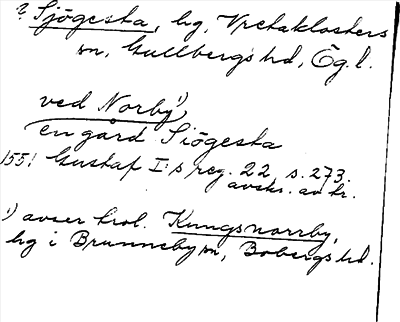 ? Sjögesta, hg, Vretaklosters
sn, Gullbergs hd, Ög. l.
ved Norby¹)
en gård Siögesta
1551 Gustaf I:s reg. 22, s. 273.
avskr. av br.
¹) avser trol. Kungsnorrby,
hg i Brunneby sn, Bobergs hd.